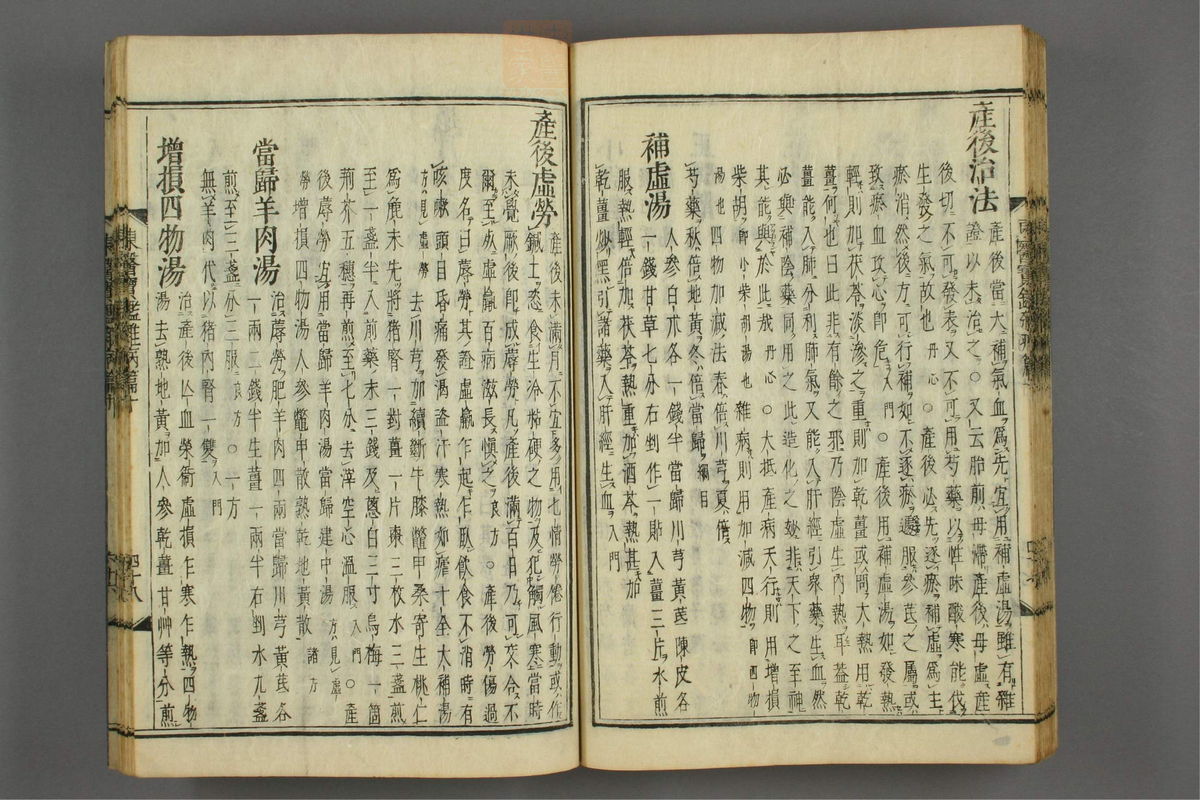 產後治法
產後當大補氣血爲先宜用補虛湯雖有雜
證以末治之○又云胎前母滯產後母虛產
後切不可發表又不可用芍藥以性味酸寒能伐
生發之氣故也丹心○產後必先逐瘀補虛爲主
瘀消然後方可行補如不逐瘀遽服參芪之屬或
致瘀血攻心卽危入門○產後用補虛湯如發熱
輕則加茯苓淡滲之重則加乾薑或問大熱用乾
薑何也曰此非有餘之邪乃陰虛生內熱耳盖乾
薑能入肺分利肺氣又能入肝經引衆藥生血然
必與補陰藥同用之此造化之妙非天下之至神
其能與於此哉丹心○大抵產病天行則用增損
柴胡卽小柴胡湯也雜病則用加減四物卽四物
湯也四物加減法春倍川芎夏倍
芍藥秋倍地黃冬倍當歸綱目
補虛湯
人參白朮各一錢半當歸川芎黃芪陳皮各
一錢甘草七分右剉作一貼入薑三片水煎
服熱輕倍加茯苓熱重加酒芩熱甚加
乾薑炒黑引諸藥入肝經生血入門
產後虛勞
產後未滿月不宜多用七情勞倦行動或作
鍼工恣食生冷粘硬之物及犯觸風寒當時
未覺厥後卽成蓐勞凡產後滿百日乃可交合不
爾至死虛羸百病滋長愼之良方○產後勞傷過
度名曰蓐勞其證虛羸乍起乍臥飮食不消時有
咳嗽頭目昏痛發渴盜汗寒熱如瘧十全大補湯
方見虛勞去川芎加續斷牛膝鱉甲桑寄生桃仁
爲麁末先將猪腎一對薑一片棗三枚水三盞煎
至一盞半入前藥末三錢及葱白三寸烏梅一箇
荊芥五穗再煎至七分去滓空心溫服入門○產
後蓐勞宜用當歸羊肉湯當歸建中湯方見虛
勞增損四物湯人參鱉甲散熟乾地黃散諸方
當歸羊肉湯
治蓐勞肥羊肉四兩當歸川芎黃芪各
一兩二錢半生薑一兩半右剉水九盞
煎至三盞分三服良方○一方
無羊肉代以猪內腎一雙入門
增損四物湯
治產後亾血榮衞虛損乍寒乍熱四物
湯去熟地黃加人參乾薑甘艸等分煎
東醫寶鑑雜病篇
四十八